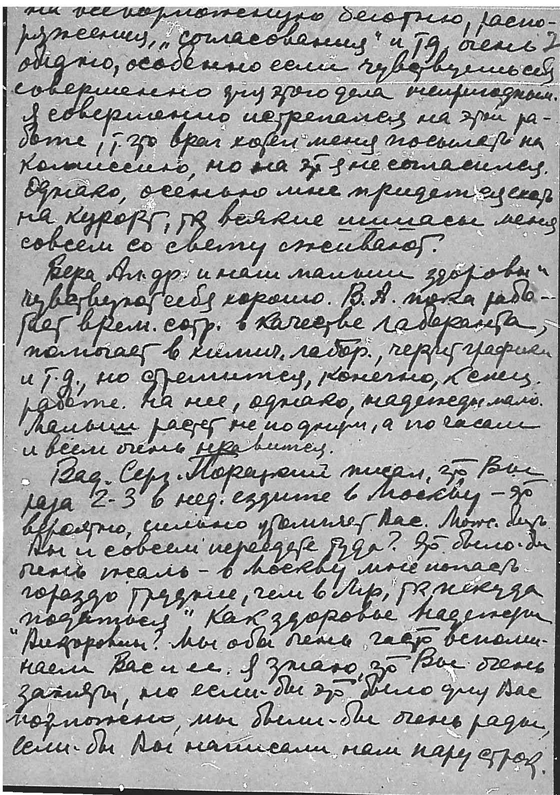 на всевозможную беготню, распо-
ряжения, "согласования" и т.д. очень
обидно, особенно если чувствуешь себя
совершенно для этого дела непригодным.
Я совершенно истрепался на этой ра-
боте, врач хотел меня посылать на
комиссию, но на это я не согласился.
Однако, осенью мне придется ехать
на курорт, тк всякие ишиасы меня
совсем со свету сживают.
Вера Ал-др. и наш малыш здоровы и
чувствуют себя хорошо. В.А. пока рабо-
тает врем. сотр. в качестве лаборанта,
помогает в химич. лабор., чертит графики
и т.д., но стремится, конечно, к спец.
работе. На нее, однако, надежды мало.
Малыш растет не по дням, а по часам
и всем очень нравится.
Вад. Серг. писал, что Вы
раза 2-3 в нед. ездите в Москву — это
вероятно, сильно утомляет Вас. Мож. быть
Вы и совсем переедете туда? Это было-бы
очень жаль - в Москву мне попасть
гораздо труднее, чем в Лгр, тк некуда
податься". Как здоровье Надежды
Викторовны? Мы оба очень часто вспоми-
наем Вас и ее. Я знаю, что Вы очень
заняты, но если-бы это было для Вас
возможно, мы были-бы очень рады,
если-бы Вы написали нам пару строк.